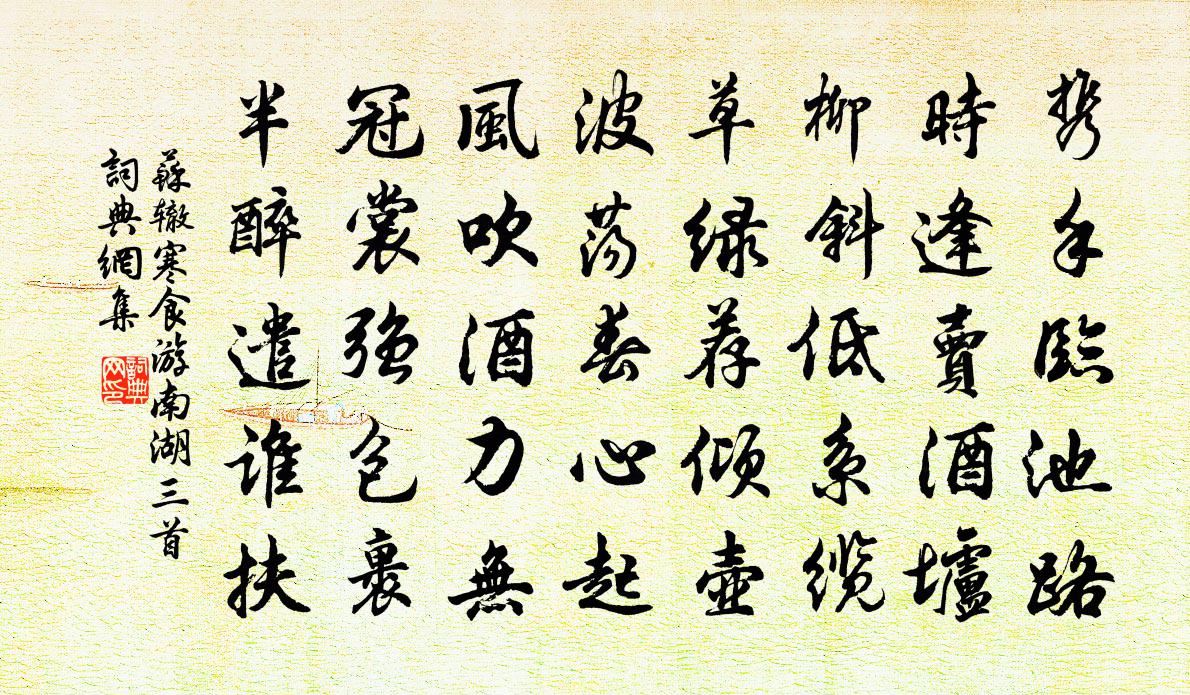 携手臨池路
時逢賣酒壚
柳斜低系纜
草緑荐傾壺
波蕩春心起
風吹酒力無
冠裳强包裹
半醉遣誰扶
蘇辙寒食游南湖三首
詞典網集
詞典网印